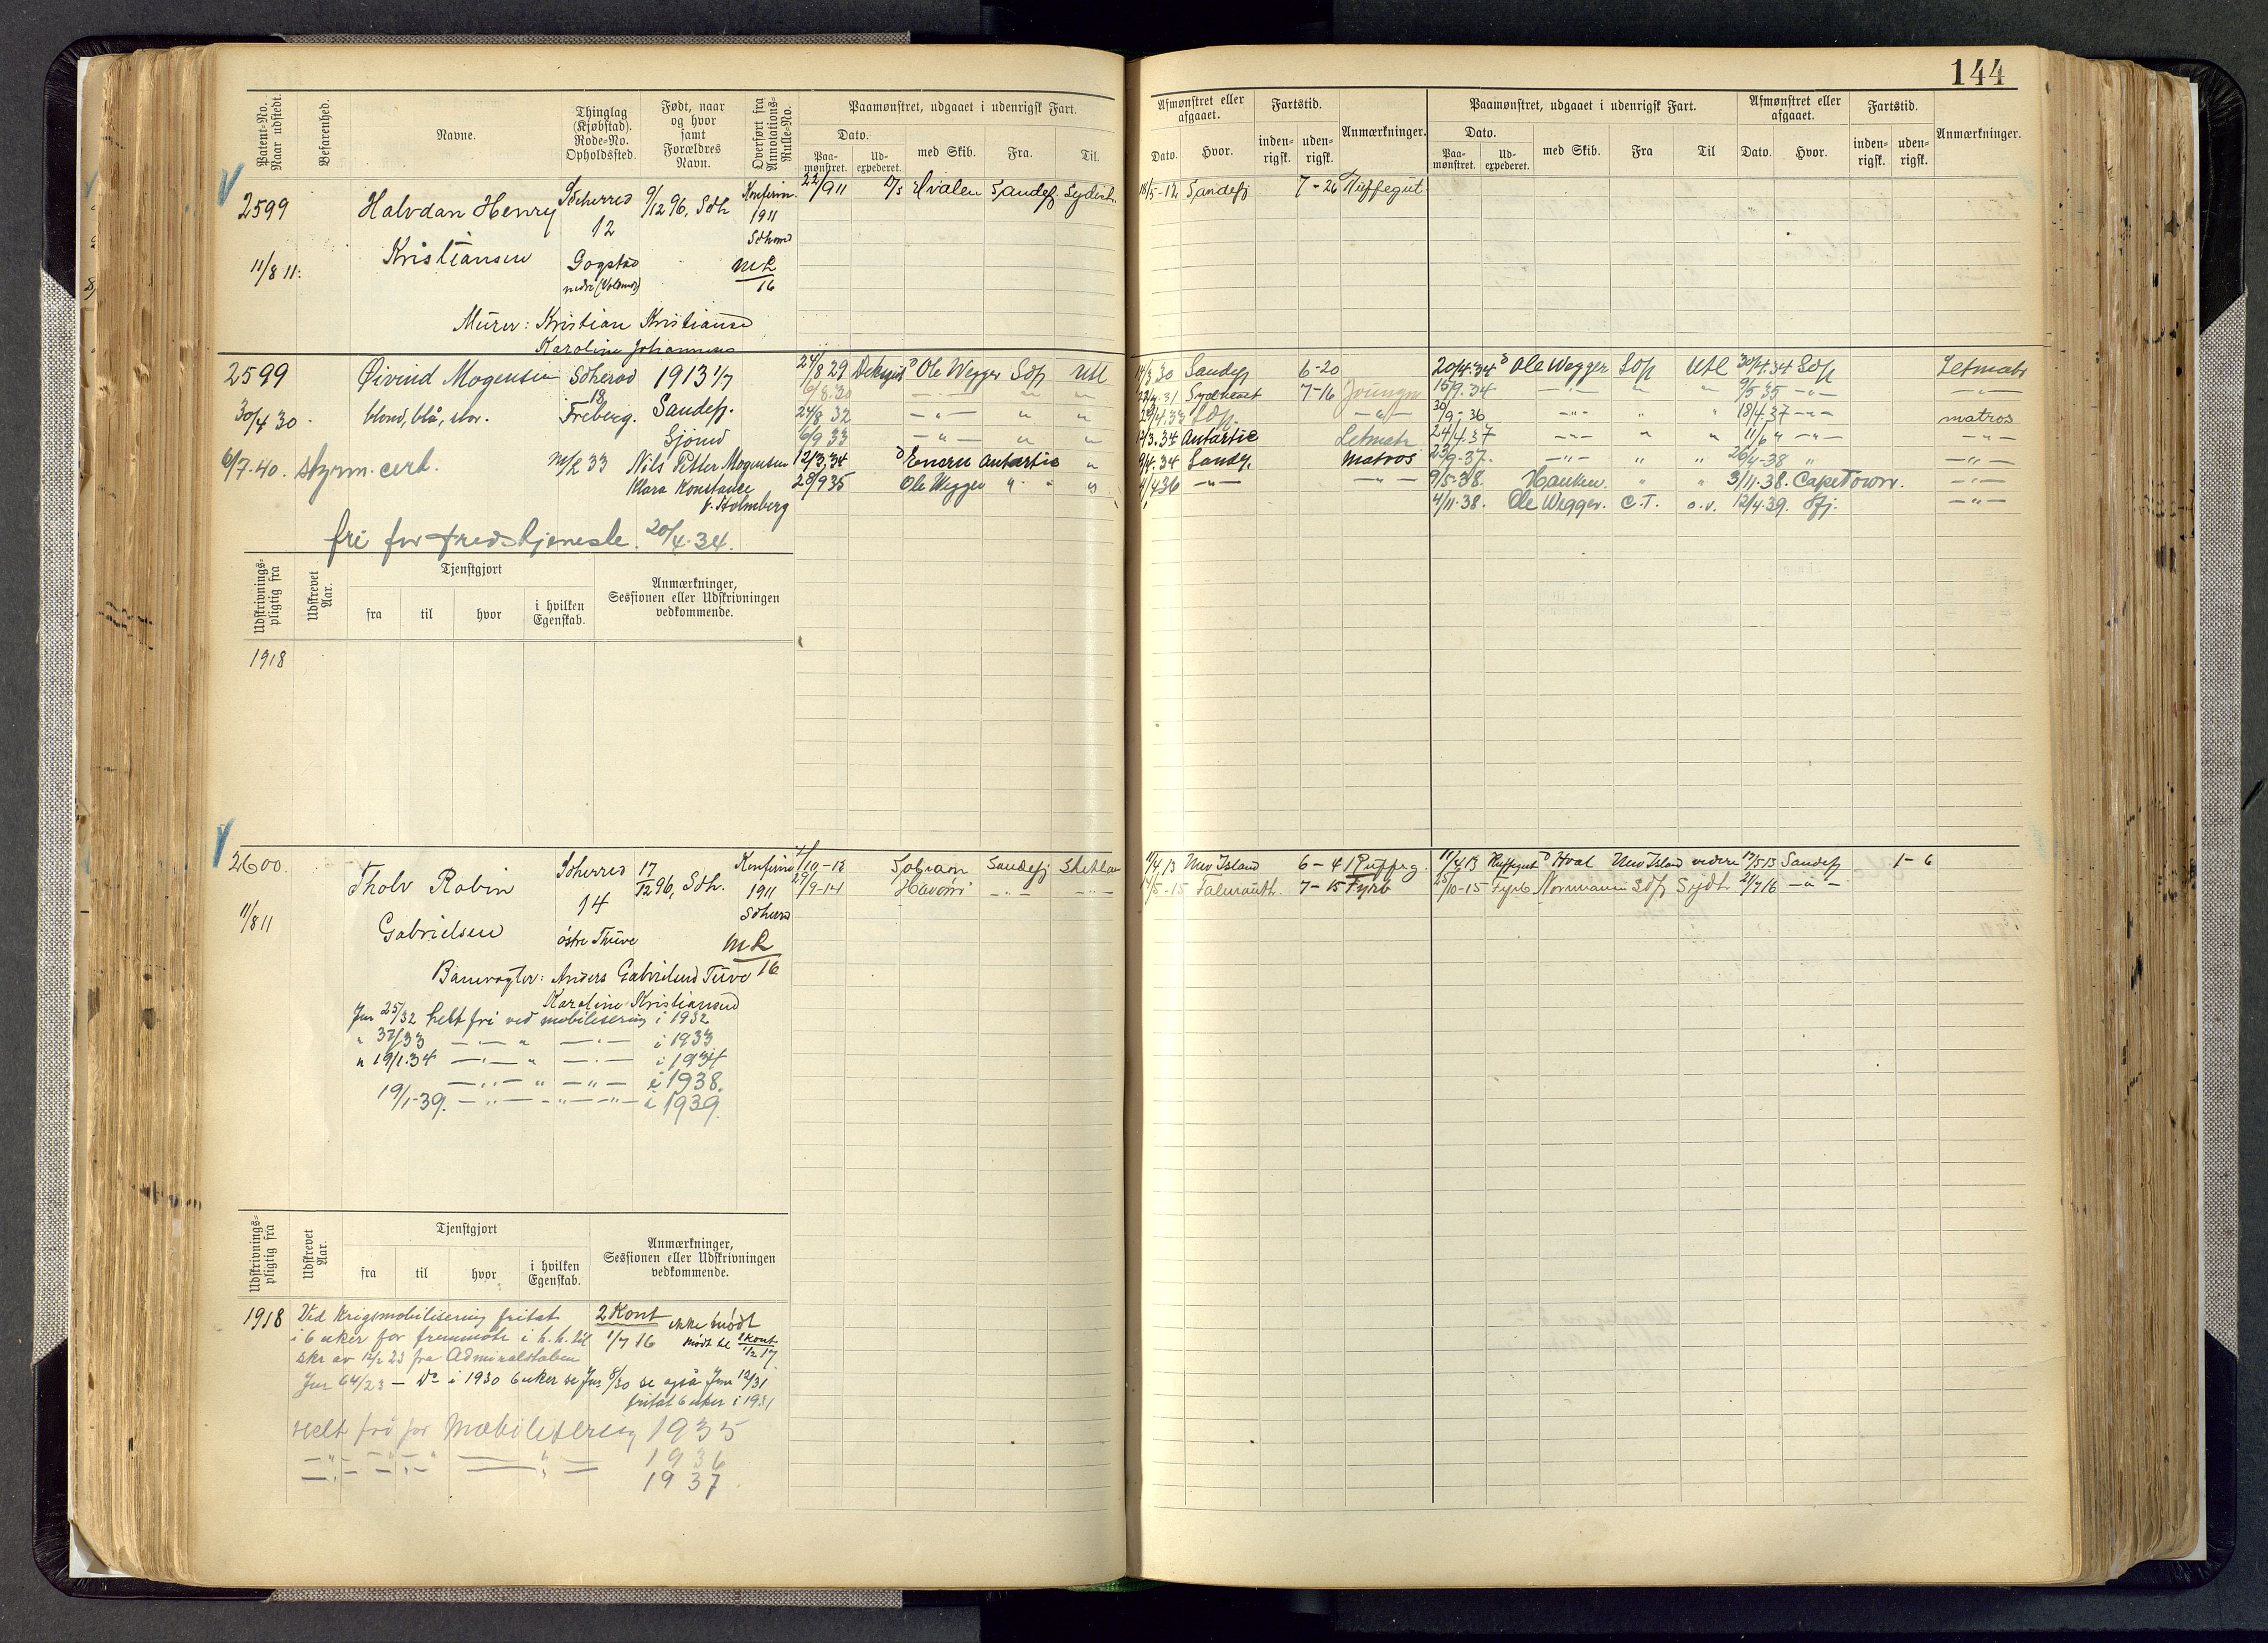 144
Patent-No. Naar udstedt.
Befarenhed.
Navne.
Thinglag (Kjøbstad). Rode-No. Opholdssted.
Født, naar og hvor samt Forældres Navn.
Overført fra Annotations-Rulle-No.
Paamønstret, udgaaet i udenrigsk Fart.
Dato.
Paa-mønstret.
Ud-expederet.
med Skib.
Fra.
Til.
Afmønstret eller afgaaet.
Dato.
Hvor.
Fartstid.
inden-rigsk.
uden-rigsk.
Anmærkninger.
Paamønstret, udgaaet i udenrigsk Fart.
Dato.
Paa-mønstret.
Ud-expederet.
med Skib.
Fra
Til
Afmønstret eller afgaaet.
Dato.
Hvor.
Fartstid.
inden-rigsk.
uden-rigsk.
Anmærkninger.
2599 Halvdan Henry Kristiansen
11/8 11.
Scherred 12 Gogstad nedre
9/12 96, Sdh
1911
ML 16
22/9 11 Hvalen Sandefj Sydish.
18/5-12 Sandefj 7-26
Murer: Kristian Kristiansen
Karoline Johannsen
2599 Øivind Mogensen Sdherad 1913 1/7
30/4 30. blond, blå, stor. 18 Freberg. Sandefj.
Gjönd
6/7-40. styrm. cert. m/R 33 Nils Petter Mogensen
Klara Konstance
f. Holmberg
fri for fredstjeneste. 20/4-34.
24/8 29 Ole Wegger Sdfj Utl
6/8.30 -"- " "
24/8 32 -"- " "
6/9 33 -"- " "
12/3.34 Antartic "
28/9 35 Ole Wegger " "
14/3 30 Sandefj 6-20
22/4.31 Sydhavet 7-16 Joungm
29/4.33 Sdfj. -"-
12/3.34 Antartic Letmatr
9/4.34 Sandfj. matros
4/4 36 -"- -"-
20/4.34 Ole Wegger Sdfj Utl 30/4.34 Sdfj Letmatr
15/9.34 -"- " " 9/5 35 -"- -"-
30/9-36 -"- " " 18/4.37 -"- matros
24/4.37 -"- " " 11/6 " -"- -"-
23/9-37. -"- " " 26/4-38 " -"-
9/5-38. Hauken. " " 3/11-38. CapeTown. -"-
4/11-38. Ole Wegger. C.T. o.v. 12/4.39. Sfj. -"-
Udskrivnings-pligtig fra
Udskrevet Aar.
Tjenstgjort
fra
til
hvor
i hvilken Egenskab.
Anmærkninger, Sessionen eller Udskrivningen vedkommende.
1918
2600. Tholv Robin Gabrielsen
11/8 11
Scherred 14 östre Thuve
17/12 96, Sdh.
1911
ML 16
Banevogter: Anders Gabrielsen Tuve
Karoline Kristiansen
Jnr 25/32 helt fri ved mobilisering i 1932
" 37/33 -"- " -"- i 1933
" 19/1.34 -"- " -"- i 1934
-"- " -"- i 1938.
19/1-39. -"- -"- -"- i 1939.
Sobraon Sandefj Shetland
29/9-14 Havöri -"- -"-
11/4 13 New Island 6-4
17/5-15 Falmouth. 7-15 Fyrb
11/4 13 Hval New Island videre 17/5-13 Sandefj 1-6
25/10-15 Fyrb Normann Sdfj Sydh 21/7 16 -"-
Udskrivnings-pligtig fra
Udskrevet Aar.
Tjenstgjort
fra
til
hvor
i hvilken Egenskab.
Anmærkninger, Sessionen eller Udskrivningen vedkommende.
1918 Ved Krigsmobilisering fritat
i 6 uker for fremmöte i h.h. til
skr av 12/2 23 fra Admiralstaben
Jnr 64/23 - Do i 1930 6 uker se Jnr 8/30 se også Jnr 12/31
fritat 6 uker i 1931
2 Kont ikke mödt
1/7 16 Mödt til 2 Kont 1/2 17
Helt fri for Mobilisering 1935
-"- -"- " 1936
-"- -"- " 1937